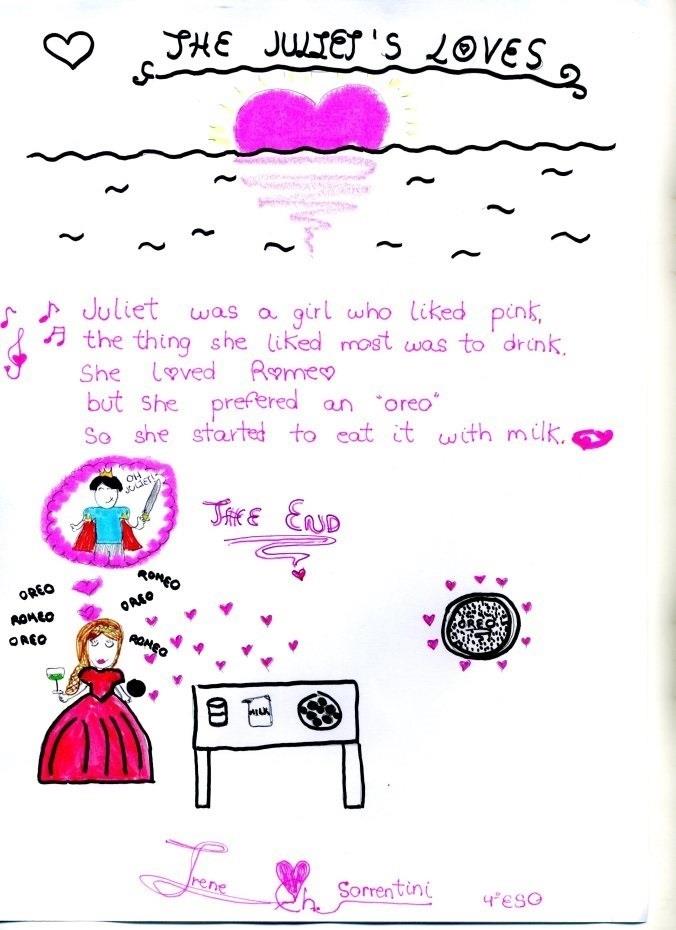 THE JULIET'S LOVES
Juliet was a girl who liked pink,
the thing she liked most was to drink.
She loved Romeo
but she prefered an "oreo"
So she started to eat it with milk.
OH JULIET!
THE END
OREO
ROMEO
OREO
ROMEO
OREO
ROMEO
OREO
MILK
Irene Ch. Sorrentini
4º ESO